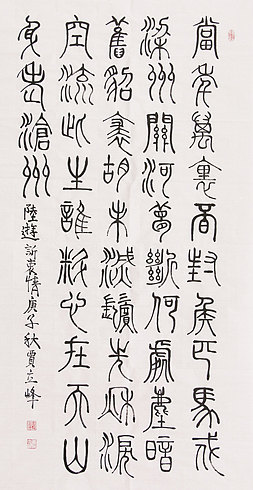 當年萬里覓封侯匹馬戍
梁州關河夢斷何處塵暗
舊貂裘胡未滅鬢先秋淚
空流此生誰料心在天山
身老滄州
陸遊訴衷情庚子秋賈立峰